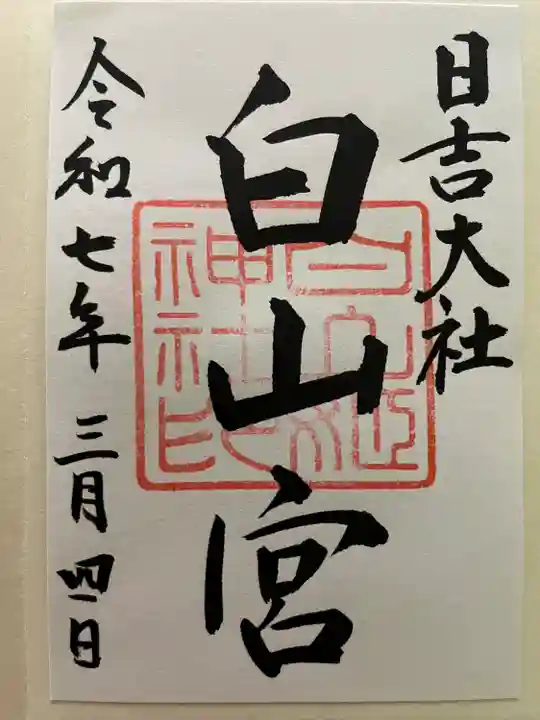 日吉大社
白山宮
令和七年三月四日
白山姫
神社印